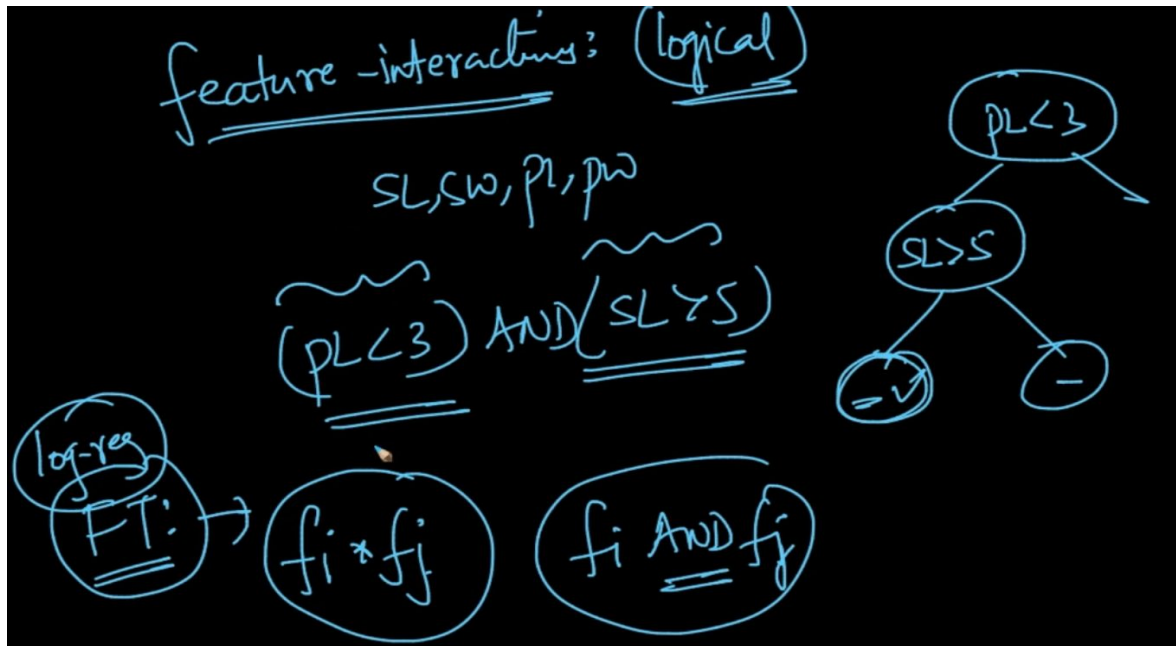 feature-interactions: logical
SL, SW, PL, PW
(PL<3) AND (SL>5)
PL<3
SL>5
log-reg
FT: → fi * fj
fi AND fj